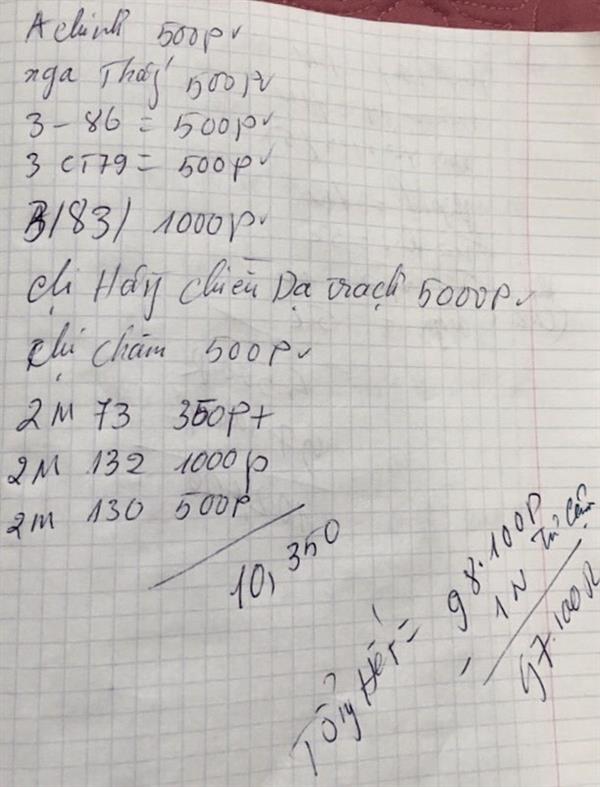 A chinh 500p✓
nga Thấy 500p✓
3 - 86 = 500p✓
3 CT79 = 500p✓
B183/ 1000p✓
chị Hấy chiều Dạ trạch 5000p✓
chị châm 500p✓
2M 73 350p+
2M 132 1000p
2m 130 500p
10,350
Tổng Hết = 98.100p
- 1N
97.100p